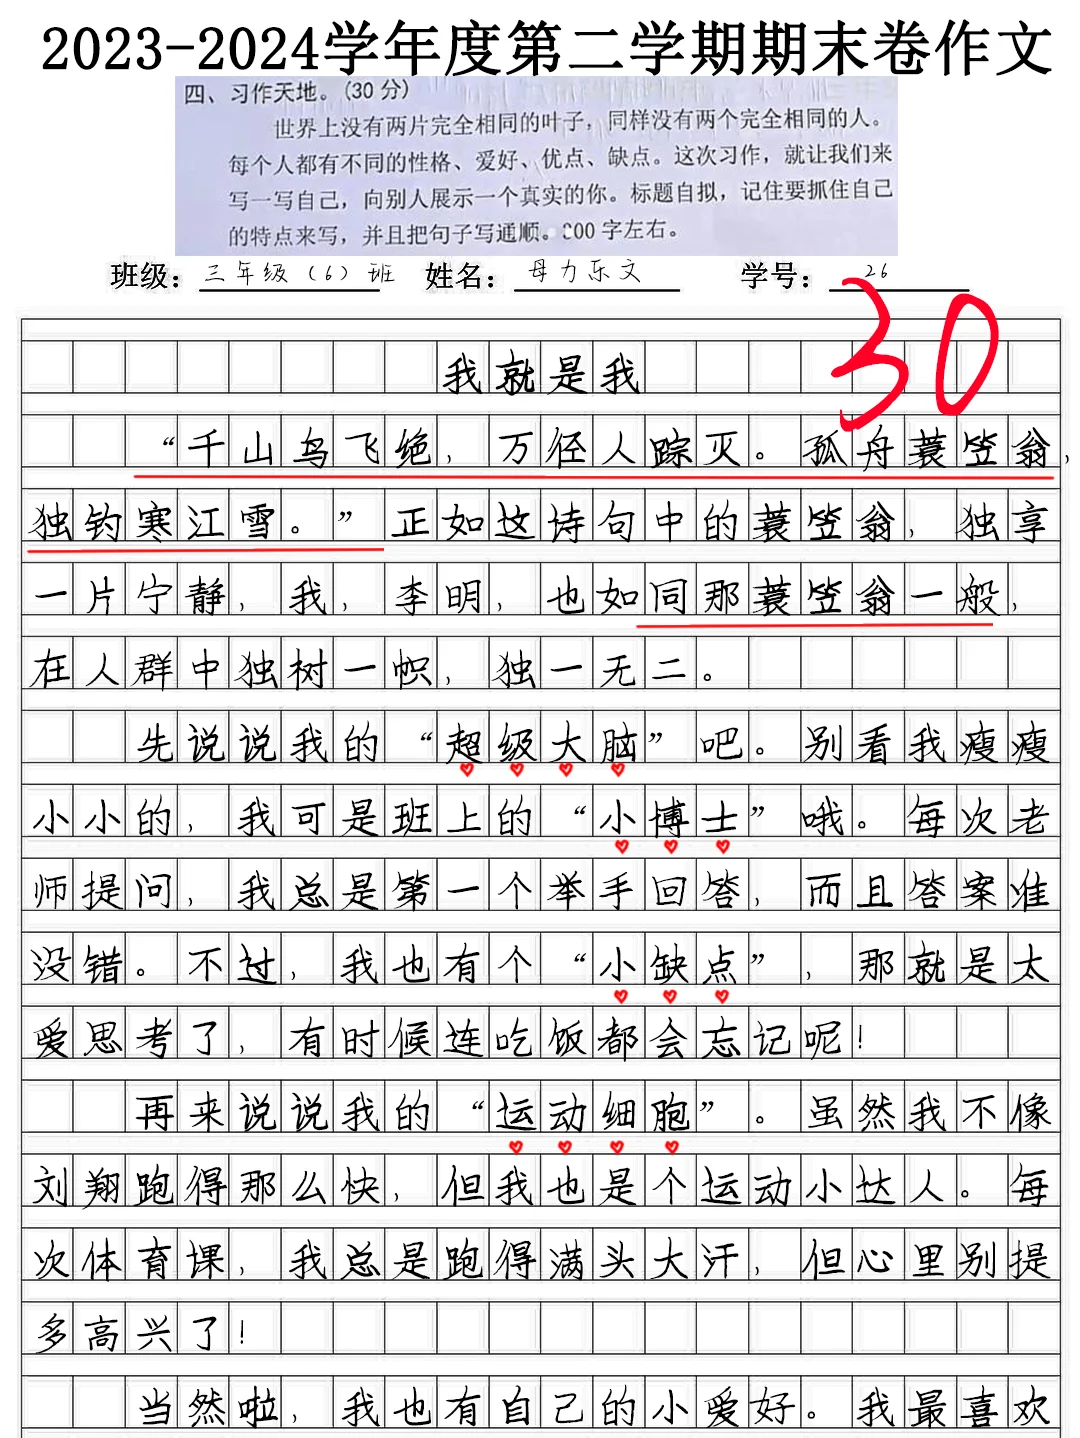 2023-2024学年度第二学期期末卷作文
四、习作天地。(30分)
世界上没有两片完全相同的叶子，同样没有两个完全相同的人。
每个人都有不同的性格、爱好、优点、缺点。这次习作，就让我们来
写一写自己，向别人展示一个真实的你。标题自拟，记住要抓住自己
的特点来写，并且把句子写通顺。300字左右。
班级：三年级（6）班 姓名：母力乐文 学号：26
30
我就是我
“千山鸟飞绝，万径人踪灭。孤舟蓑笠翁，
独钓寒江雪。”正如这诗句中的蓑笠翁，独享
一片宁静，我，李明，也如同那蓑笠翁一般，
在人群中独树一帜，独一无二。
先说说我的“超级大脑”吧。别看我瘦瘦
小小的，我可是班上的“小博士”哦。每次老
师提问，我总是第一个举手回答，而且答案准
没错。不过，我也有个“小缺点”，那就是太
爱思考了，有时候连吃饭都会忘记呢！
再来说说我的“运动细胞”。虽然我不像
刘翔跑得那么快，但我也是个运动小达人。每
次体育课，我总是跑得满头大汗，但心里别提
多高兴了！
当然啦，我也有自己的小爱好。我最喜欢